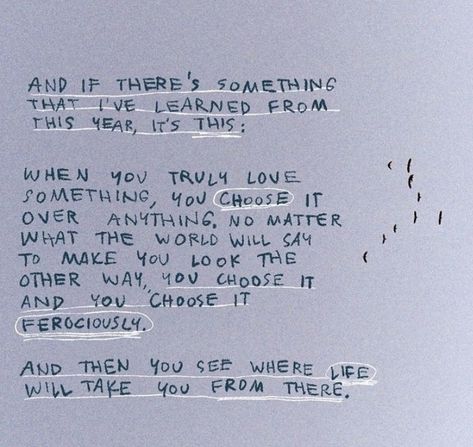 AND IF THERE'S SOMETHING
THAT I'VE LEARNED FROM
THIS YEAR, IT'S THIS:
WHEN YOU TRULY LOVE
SOMETHING, YOU CHOOSE IT
OVER ANYTHING. NO MATTER
WHAT THE WORLD WILL SAY
TO MAKE YOU LOOK THE
OTHER WAY, YOU CHOOSE IT
AND YOU CHOOSE IT
FEROCIOUSLY.
AND THEN YOU SEE WHERE LIFE
WILL TAKE YOU FROM THERE.